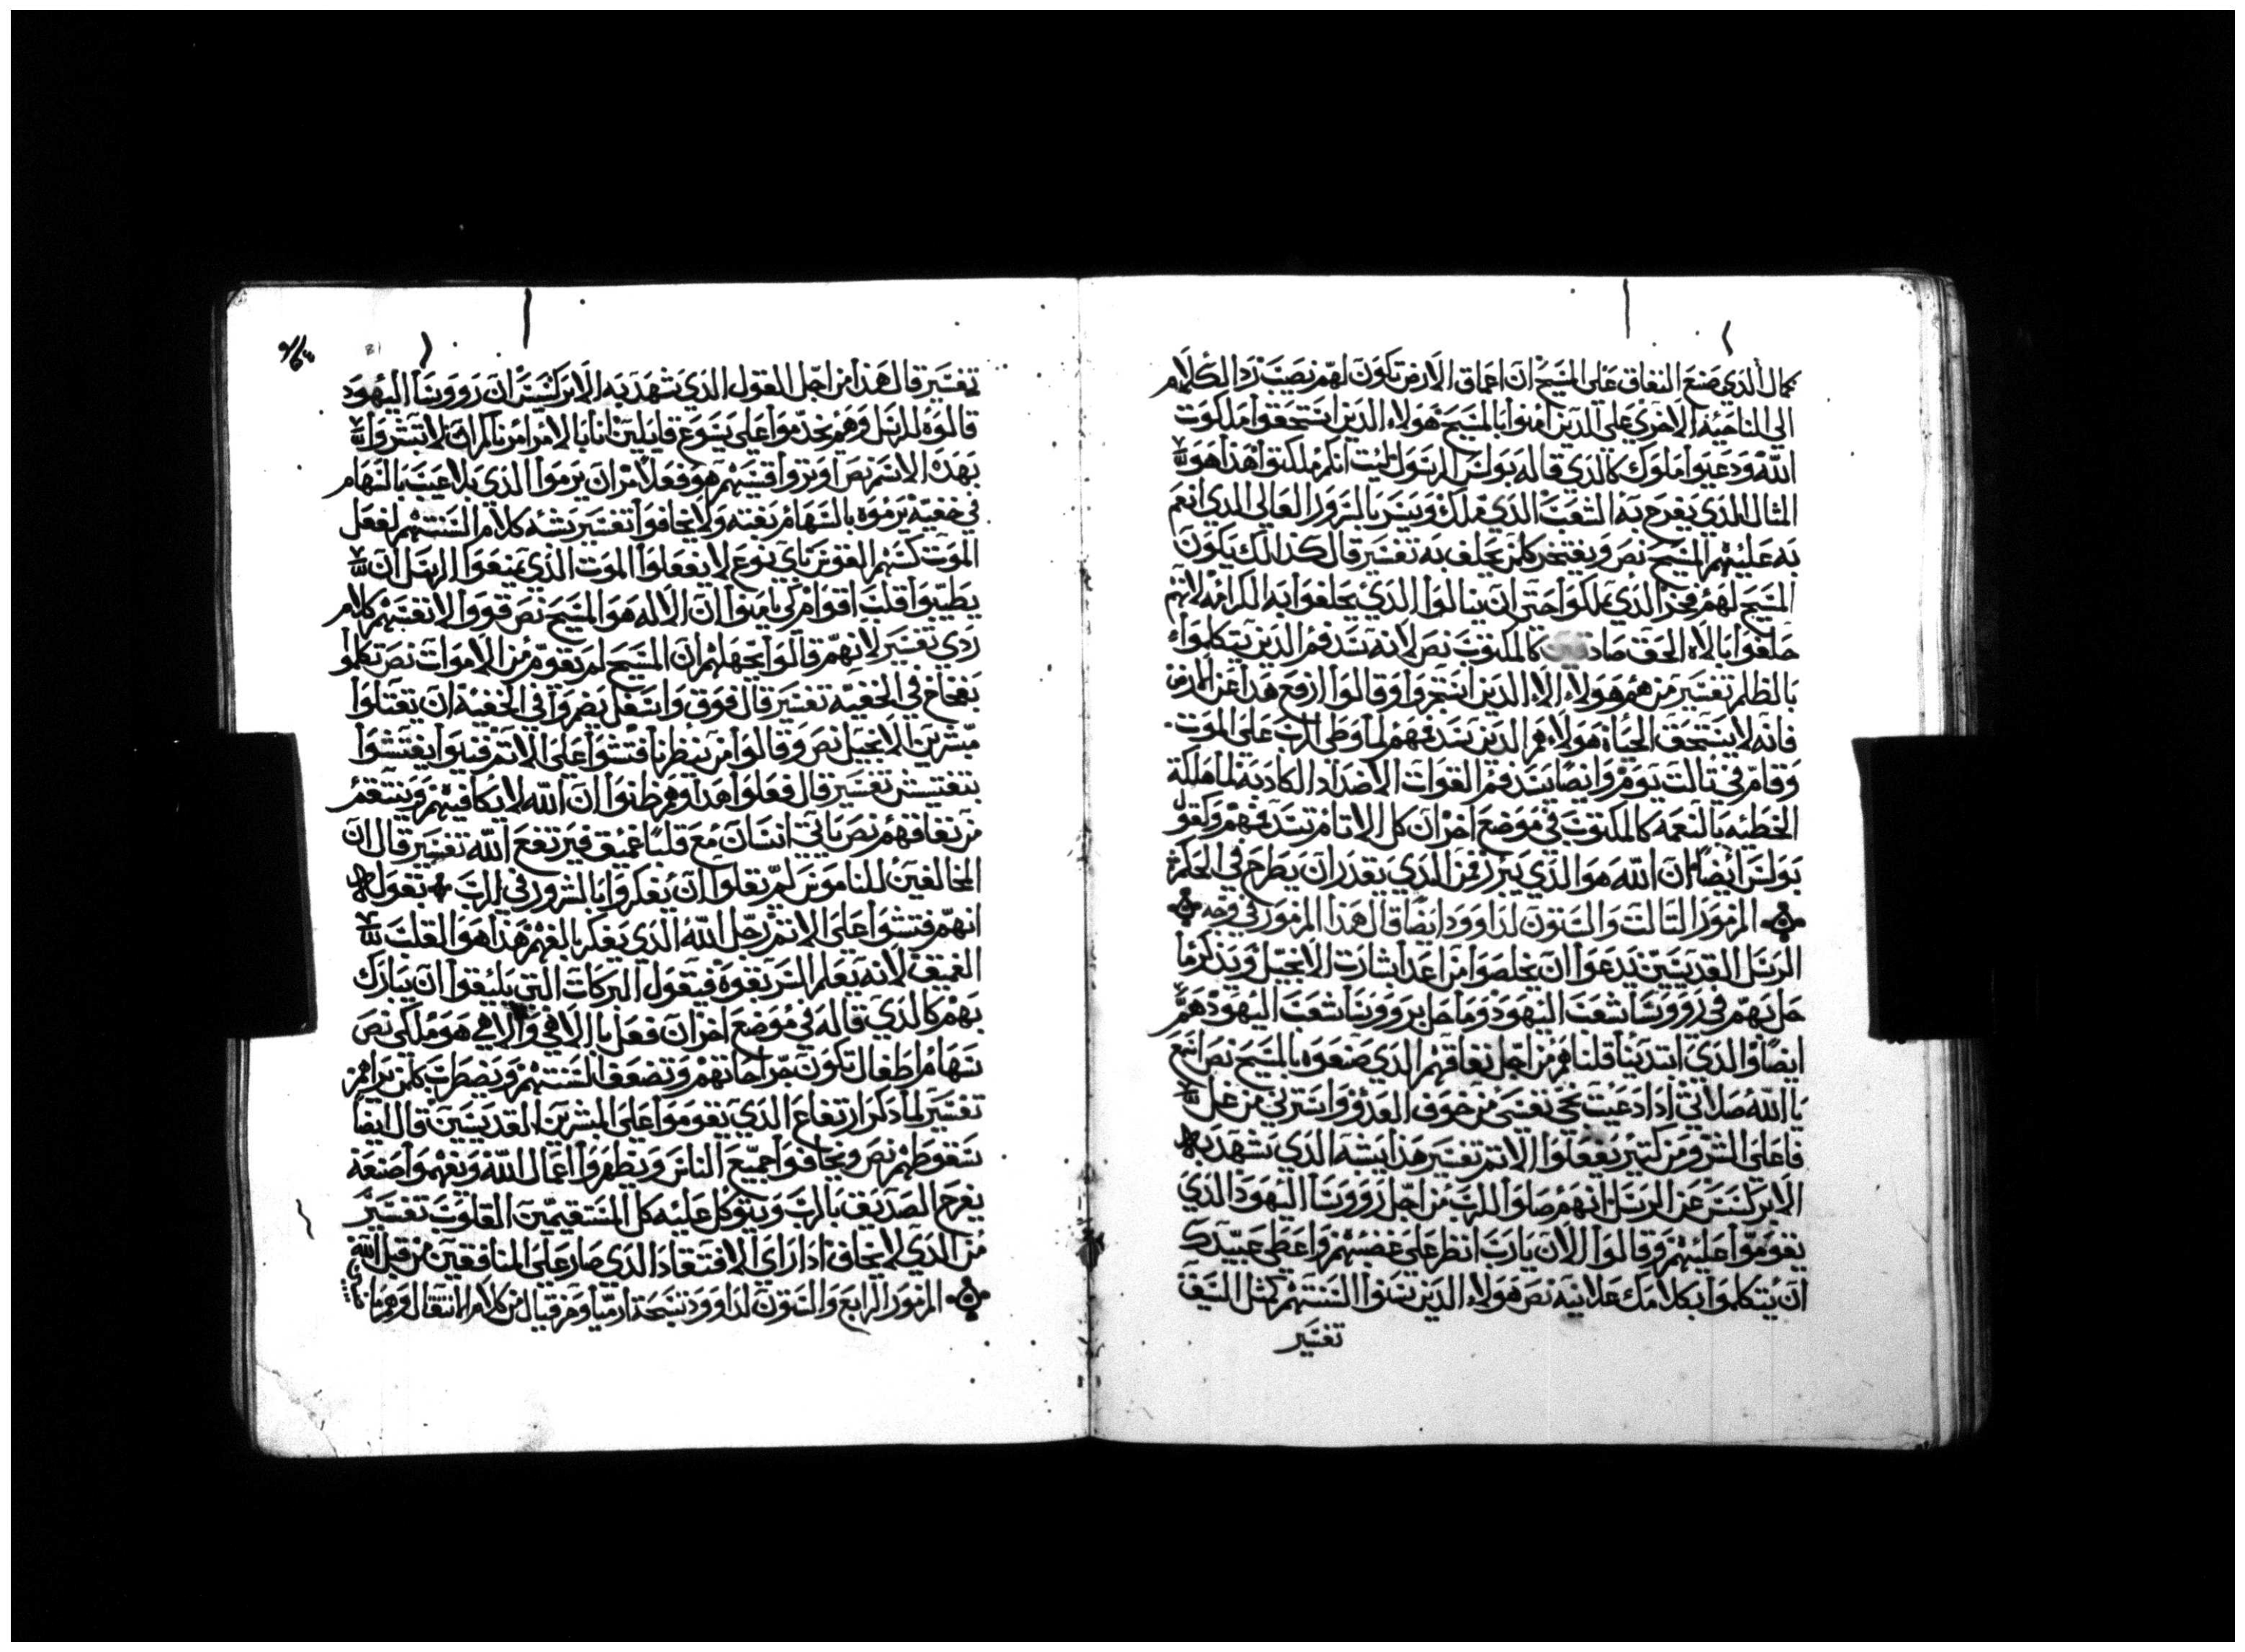 كمال الذي صنع النفاق على المسيح ان اعماق الارض تكون لهم نصيب رد الكلام
الى الناحيه الاخري على الذين امنوا بالمسيح هولاء الذين استحقوا ملكوت
الله ودعيوا ملوك كالذي قاله بولس الرسول ليت انكم ملكتوا هذا هو
المثال الذي يفرح به الشعب الذي ملك ويسر بالسرور العالي الذي انعم
به عليهم المسيح نص ويفتخر كلمن يحلف به تفسير قال كذالك يكون
المسيح لهم فخر الذي ملكوا حتى ان ينالوا الذي يحلفوا به الكرامه لانهم
حلفوا بالاه الحق صادقين كالمكتوب نص لانه تسد فم الذين يتكلموا
بالظلم تفسير من هم هولاء الا الذين استجروا وقالوا ارفع هذا عن الارض
فانه لا يستحق الحياة هولاء هم الذين تسد فمهم لما وطي الرب على الموت
وقام في تالت يوم وايضا يسد فم القوات الاضداد الكادبه لما هلكة
الخطيه بالنعمه كالمكتوب في موضع اخر ان كل الاتام تسد فمهم وكقول
بولس ايضا ان الله هو الذي يبرر فمن الذي يقدر ان يطرح في الحكم
المزمور التالت والستون لداوود ايضا قال هذا المزمور في وجه
الرسل القديسين يدعوا ان يخلصوا من اعدا بشارت الانجيل ويذكر ما
حل بهم في رووسا شعب اليهود وما حل برووسا شعب اليهود هم
ايضا والذي ابتدينا قلناهم من اجل نفاقهم الذي صنعوه بالمسيح نص اسمع
يا الله صلاتي ادا دعيت نجي نفسي من خوف العدو واسترني من عمل
فاعلى الشر ومن كتير يفعلوا الاتم تفسير هذا يشبه الذي يشهد به
الابركسس عن الرسل انهم صلوا للرب من اجل رووسا اليهود الذي
يقوموا عليهم وقالوا الان يارب انظر على غضبهم واعطى عبيدك
ان يتكلموا بكلامك علانيه نص هولاء الذين سنوا السنتهم كمثل السيف
تفسير
تفسير قال هذا من اجل القول الذي تشهد به الابركسس ان رووسا اليهود
قالوه للرسل وهم يخدموا على يسوع قايلين اننا بالامر امرناكم ان لا تبشروا
بهذه الاسم نص اوتروا قسيهم هو فعلا مر ان يرموا الذي بلا عيب بالسهام
في خفيه يرموه بالسهام بغته ولا يخافوا تفسير يشبه كلام السنتهم لفعل
الموت كسهم القوس باي نوع لا يفعلوا الموت الذي يمنعوا الرسل ان
يطيبوا قلب اقوام لي يامنوا ان الاله هو المسيح نص قووا لانفسهم كلام
ردي تفسير لانهم قالوا بجهلهم ان المسيح لم يقوم من الاموات نص تكلموا
بفخاخ في الخفيه تفسير قال فوق واسفل يضمروا في الخفيه ان يقتلوا
مبشرين الانجيل نص وقالوا من ينظرنا فتشوا على الاتم فنيوا يفتشوا
بتفتيش تفسير قال فعلوا هدا وهم ظنوا ان الله لا يكافيهم وينتقم
من نفاقهم نص ياتي انسان مع قلبا عميق فيرتفع الله تفسير قال ان
المخالفين للناموس لم يقلوا ان يفكروا بالشرور في الرب تقول
انهم فتشوا على الاتم رجل الله الذي يفكر بالفهم هذا هو القلب
العميق لانه يعلم السر بقوة فيقول البركات التي يليقوا ان يبارك
بهم كالذي قاله في موضع اخر ان فعل يا الاهي والاهي هو ملكي نص
سهام اطفال تكون جراحاتهم وتضعف السنتهم ويضطرب كلمن يراهم
تفسير لما ذكر ارتفاع الذي يقوموا على المبشرين القديسين قال ايضا
سقوطهم نص ويخافوا جميع الناس ويظهروا اعمال الله ويفهموا صنعة
يفرح الصديق بالرب ويتوكل عليه كل المستقيمين القلوب تفسير
من الذي لا يخاف ادا راى الافتقاد الذي صار على المنافقين من قبل الله
المزمور الرابع والستون لداوود تسبحة ارميا وحزقيال من كلام الانتقال وهو ما